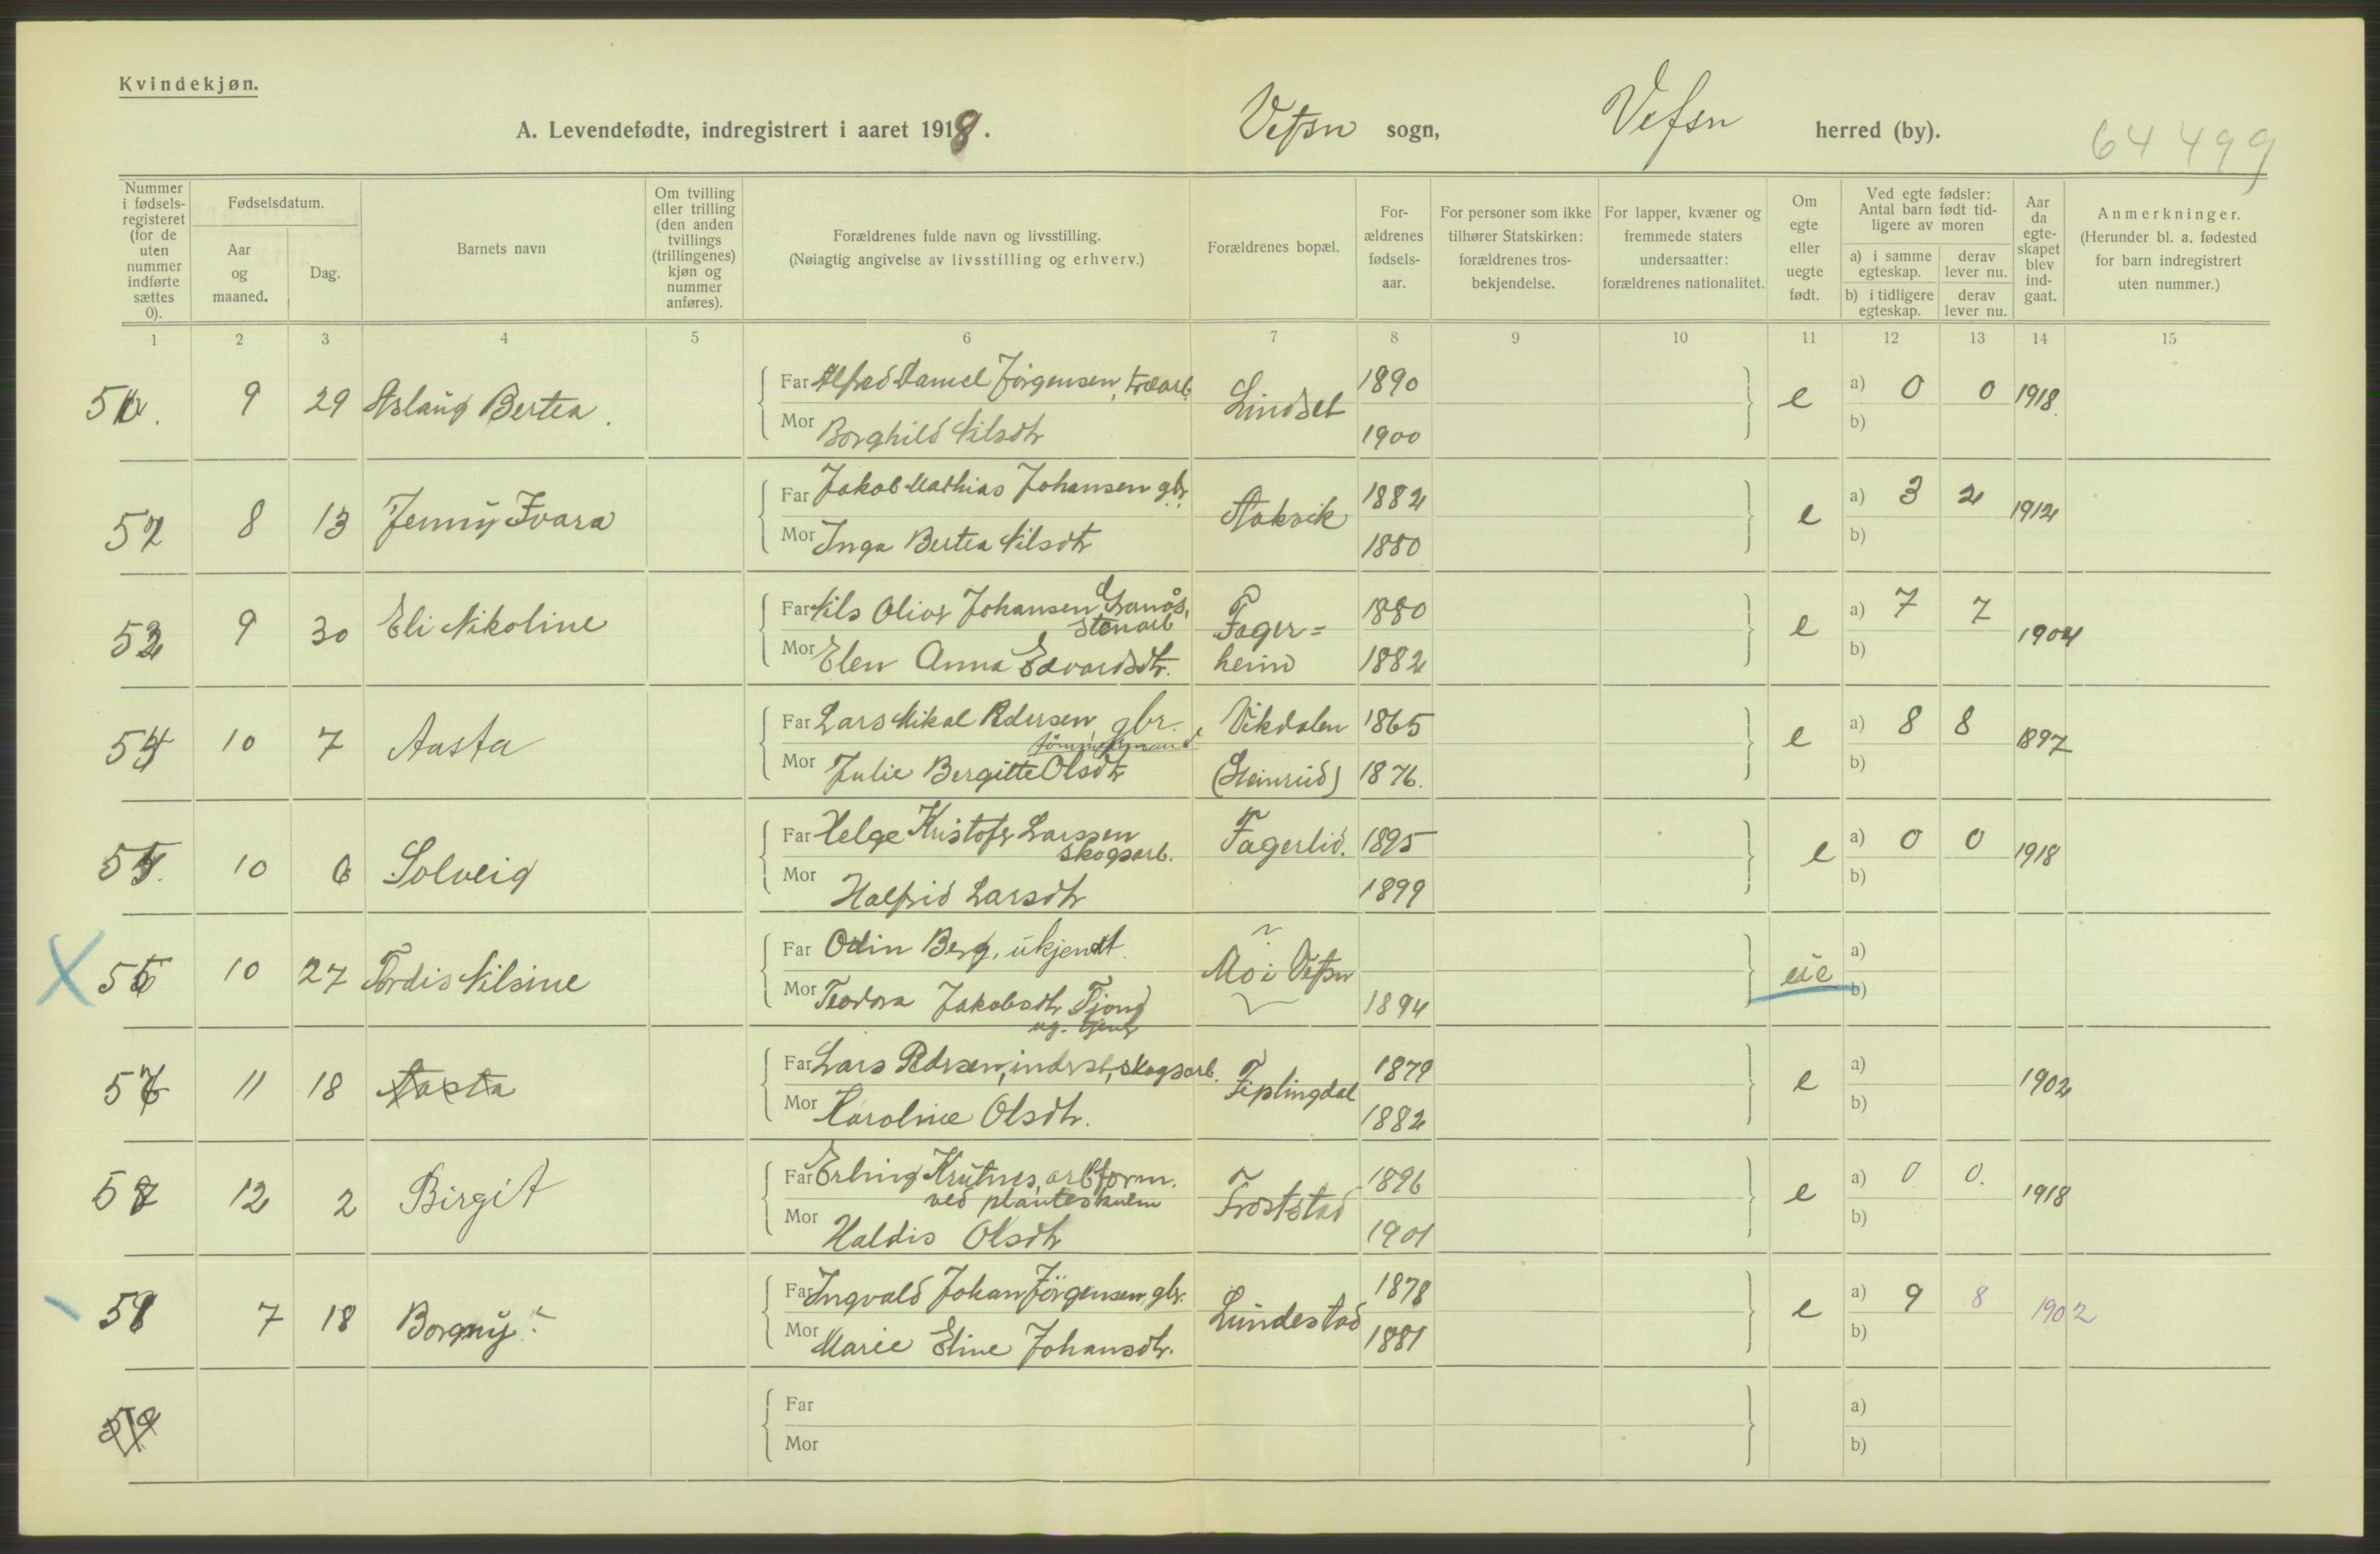 Kvindekjøn.
A. Levendefødte, indregistrert i aaret 1918.
Vefsn sogn,
Vefsn herred (by).
64 499
Nummer i fødsels-registeret (for de uten nummer indførte sættes 0).
Fødselsdatum.
Aar og maaned.
Dag.
Barnets navn
Om tvilling eller trilling (den anden tvillings (trillingenes) kjøn og nummer anføres).
Forældrenes fulde navn og livsstilling.
(Nøiagtig angivelse av livsstilling og erhverv.)
Forældrenes bopæl.
For-ældrenes fødsels-aar.
For personer som ikke tilhører Statskirken: forældrenes tros-bekjendelse.
For lapper, kvæner og fremmede staters undersaatter: forældrenes nationalitet.
Om egte eller uegte født.
Ved egte fødsler: Antal barn født tid-ligere av moren
a) i samme egteskap. derav lever nu.
b) i tidligere egteskap. derav lever nu.
Aar da egte-skapet blev ind-gaat.
Anmerkninger.
(Herunder bl. a. fødested for barn indregistrert uten nummer.)
1 2 3 4 5 6 7 8 9 10 11 12 13 14 15
9 29 Aslaug Bertea.
Far Alfred Daniel Jörgensen, træarb. Lindset 1890 e a) 0 0 1918.
Mor Borghild Nilsdtr 1900 b)
52 8 13 Jenny Ivara
Far Jakob Mathias Johansen gbr. 1882 e a) 3 2 1912
Mor Inga Bertea Nilsdtr 1880 b)
53 9 30 Eli Nikoline
Far Nils Oliver Johansen Granås, stenarb Fager= 1880 e a) 7 7 1904
Mor Elen Anna Edvardsdtr. heim 1882 b)
54 10 7 Aasta
Far Lars Mikal Pedersen, gbr. tömmermand Vikdalen 1865 e a) 8 8 1897
Mor Julie Bergitte Olsdtr (Steinrud) 1876. b)
55. 10 6 Solveig
Far Helge Kristofer Larssen skogsarb. Fagerlid. 1895 e a) 0 0 1918
Mor Halfrid Larsdtr 1899 b)
X 56 10 27 Tordis Nilsine
Far Odin Berg, ukjendt. Mo i Vefsn a)
Mor Teodora Jakobsdtr Tjong ug. tjener 1894 b)
57 11 18 Aasta
Far Lars Pedersen, inderst, skogsarb. Fiplingdal 1879 e a) 1902
Mor Karoline Olsdtr. 1882 b)
58 12 2 Birgit
Far Erling Krutnes, arb.form. ved planteskulen Froststad 1896 e a) 0 0. 1918
Mor Haldis Olsdtr 1901 b)
7 18 Borgny
Far Ingvald Johan Jörgensen gbr. Lundestad 1878 e a) 9 8 1902
Mor Marie Eline Johansdtr. 1881 b)
59
Far a)
Mor b)